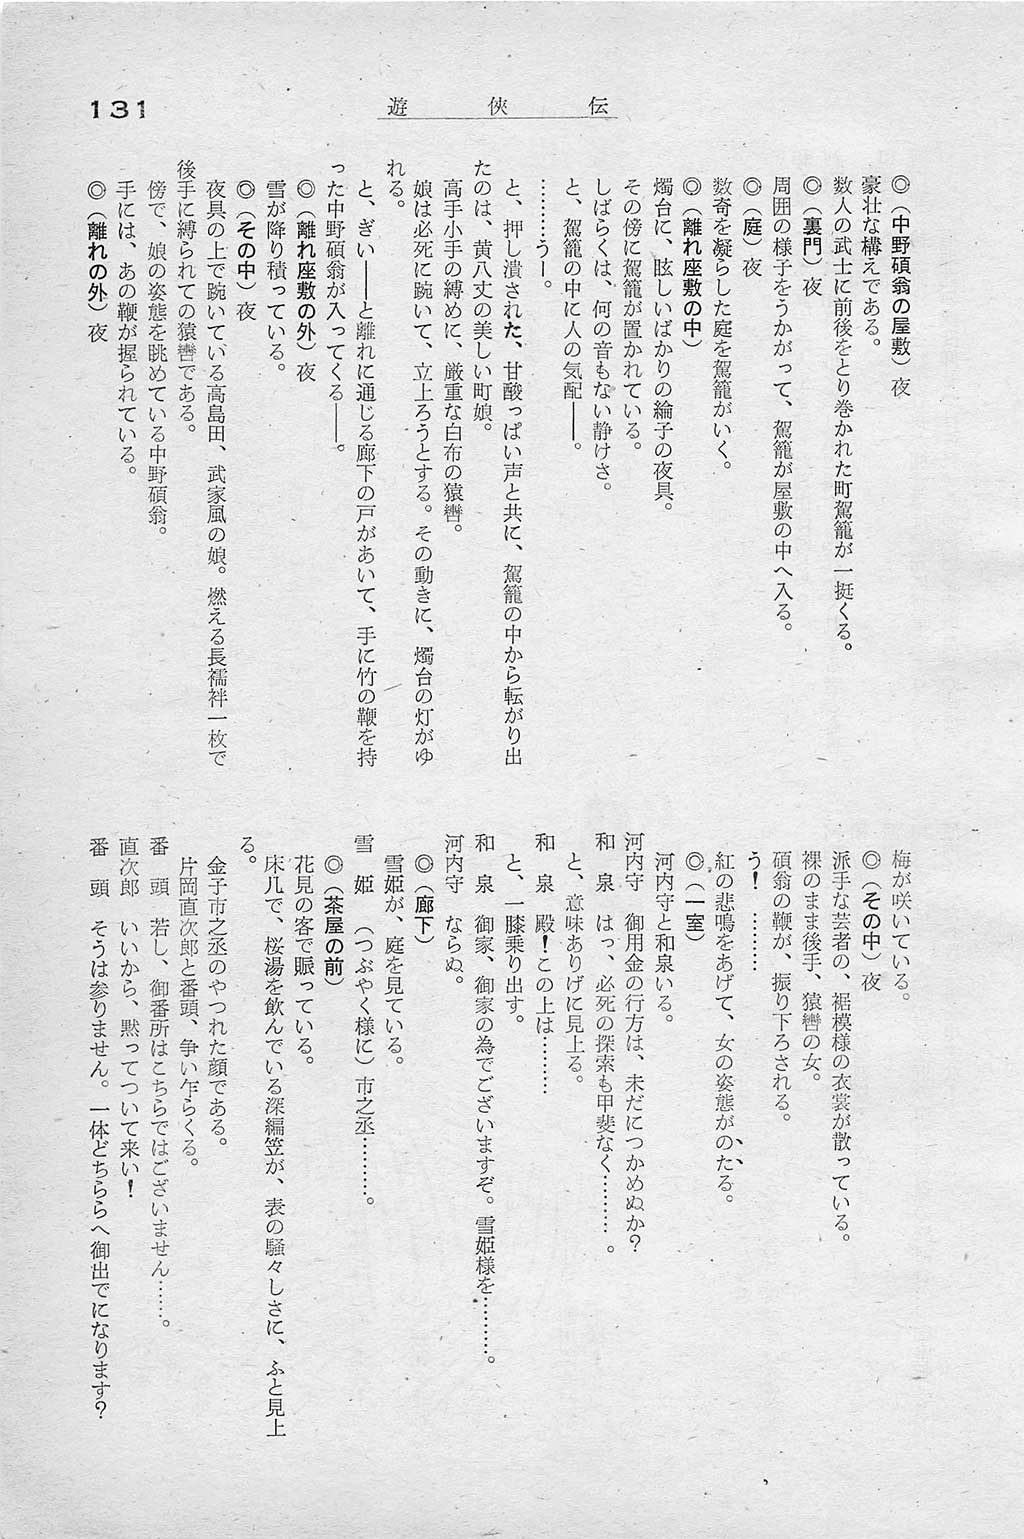 131
遊俠伝
◎（中野碩翁の屋敷）夜
豪壮な構えである。
数人の武士に前後をとり巻かれた町駕籠が一挺くる。
◎（裏門）夜
周囲の様子をうかがって、駕籠が屋敷の中へ入る。
◎（庭）夜
数奇を凝らした庭を駕籠がいく。
◎（離れ座敷の中）
燭台に、眩しいばかりの綸子の夜具。
その傍に駕籠が置かれている。
しばらくは、何の音もない静けさ。
と、駕籠の中に人の気配――。
………うー。
と、押し潰された、甘酸っぱい声と共に、駕籠の中から転がり出
たのは、黄八丈の美しい町娘。
高手小手の縛めに、厳重な白布の猿轡。
娘は必死に踠いて、立上ろうとする。その動きに、燭台の灯がゆ
れる。
と、ぎい――と離れに通じる廊下の戸があいて、手に竹の鞭を持
った中野碩翁が入ってくる――。
◎（離れ座敷の外）夜
雪が降り積っている。
◎（その中）夜
夜具の上で踠いている高島田、武家風の娘。燃える長襦袢一枚で
後手に縛られての猿轡である。
傍で、娘の姿態を眺めている中野碩翁。
手には、あの鞭が握られている。
◎（離れの外）夜
梅が咲いている。
◎（その中）夜
派手な芸者の、裾模様の衣裳が散っている。
裸のまま後手、猿轡の女。
碩翁の鞭が、振り下ろされる。
う！…………
紅の悲鳴をあげて、女の姿態がのたる。
◎（一室）
河内守と和泉いる。
河内守　御用金の行方は、未だにつかめぬか？
和　泉　はっ、必死の探索も甲斐なく………。
と、意味ありげに見上る。
和　泉　殿！この上は………
と、一膝乗り出す。
和　泉　御家、御家の為でございますぞ。雪姫様を………。
河内守　ならぬ。
◎（廊下）
雪姫が、庭を見ている。
雪　姫　（つぶやく様に）市之丞………。
◎（茶屋の前）
花見の客で賑っている。
床几で、桜湯を飲んでいる深編笠が、表の騒々しさに、ふと見上
る。
金子市之丞のやつれた顔である。
片岡直次郎と番頭、争い乍らくる。
番　頭　若し、御番所はこちらではございません……。
直次郎　いいから、黙ってついて来い！
番　頭　そうは参りません。一体どちららへ御出でになります？